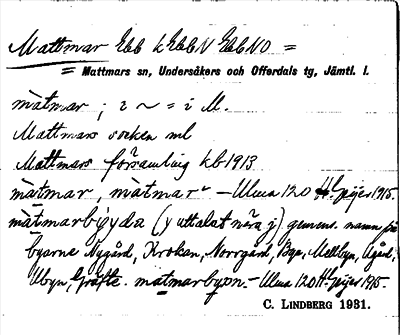 Mattmar Ebb kEbbN EbbNO =
= Mattmars sn, Undersåkers och Offerdals tg, Jämtl. l.
màtmar; i ~ = i M.
Mattmars socken ml
Mattmars församling kb 1913
màtmar, màtmar - Ulma 120 H. Geijer 1915.
màtmarbýgda (y uttalat nära j) gemens. namn på
byarne Nygård, Kroken, Norrgård, Byn, Mellbyn, Ågård,
Ubyn, Gräfte. matmarbyɷn. - Ulma 120 H. Geijer 1915.
C. LINDBERG 1931.